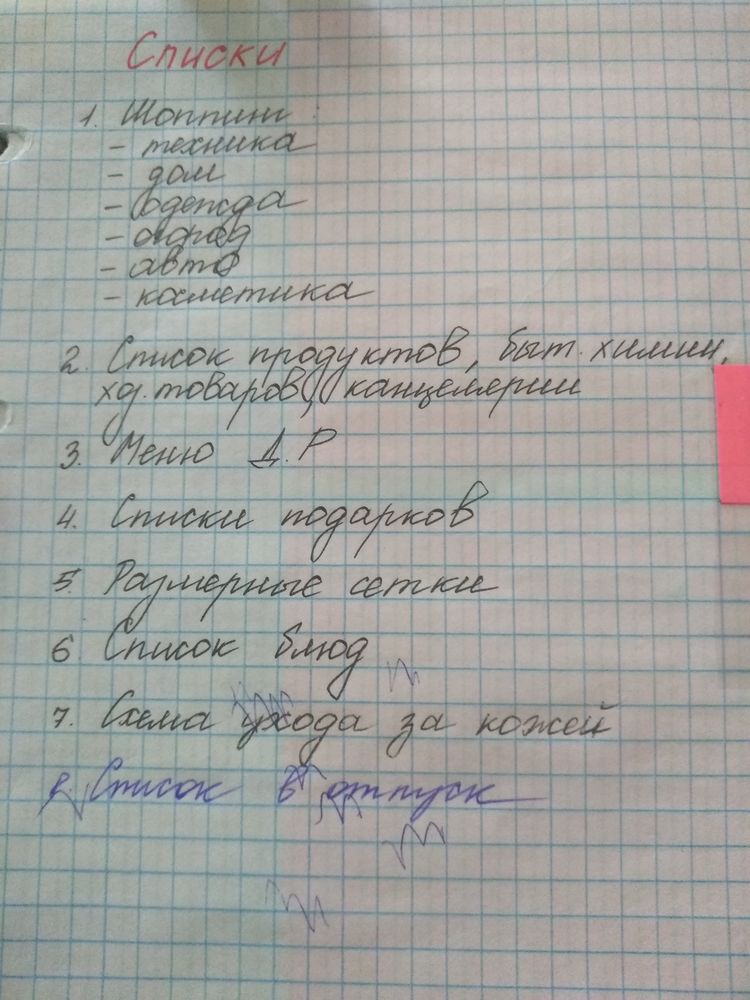 Списки
1. Шоппинг
- техника
- дом
- одежда
- огород
- авто
- косметика
2. Список продуктов, быт. химии,
хд. товаров, канцелярии
3. Меню Д.Р
4. Списки подарков
5. Размерные сетки
6 Список блюд
7. Схема ухода за кожей
8. Список в отпуск